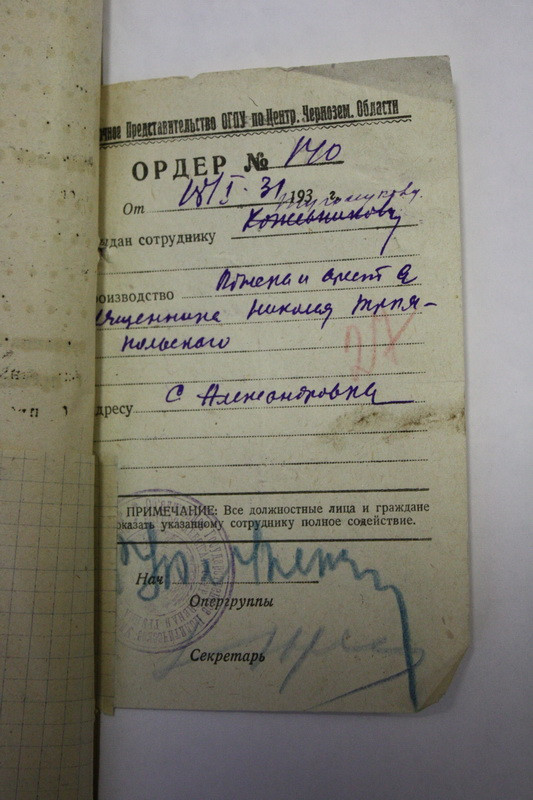 чное Представительство ОГПУ по Центр. Чернозем. Области
ОРДЕР № 170
От 18/I-31 193 г.
дан сотруднику Кожевникову
роизводство Обыска и арест
священника Николая Трипя-
польского
дресу С Александровка
ПРИМЕЧАНИЕ: Все должностные лица и граждане
оказать указанному сотруднику полное содействие.
Нач
Опергруппы
Секретарь